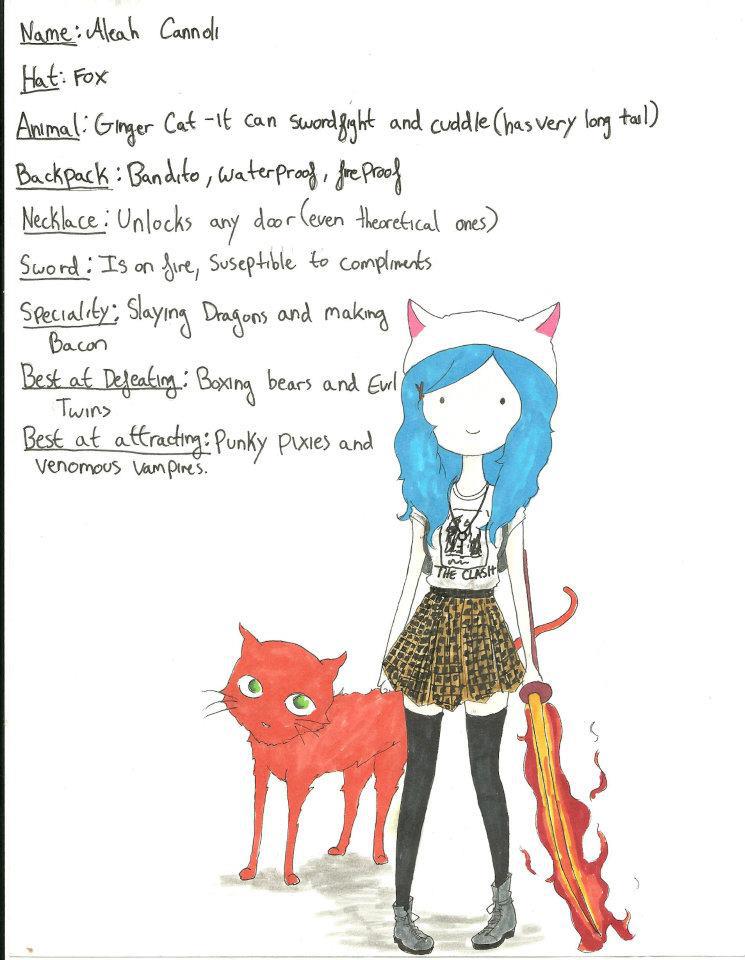 Name: Aleah Cannoli
Hat: Fox
Animal: Ginger Cat - it can swordfight and cuddle (has very long tail)
Backpack: Bandito, waterproof, fireproof
Necklace: Unlocks any door (even theoretical ones)
Sword: Is on fire, Suseptible to compliments
Speciality: Slaying Dragons and making
Bacon
Best at Defeating: Boxing bears and Evil
Twins
Best at attracting: Punky pixies and
venomous vampires.
THE CLASH